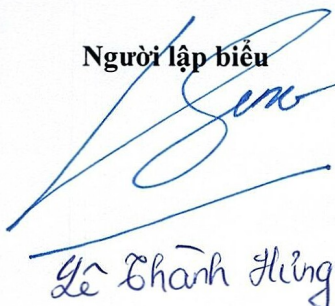 Người lập biểu
Lê Thành Hưng